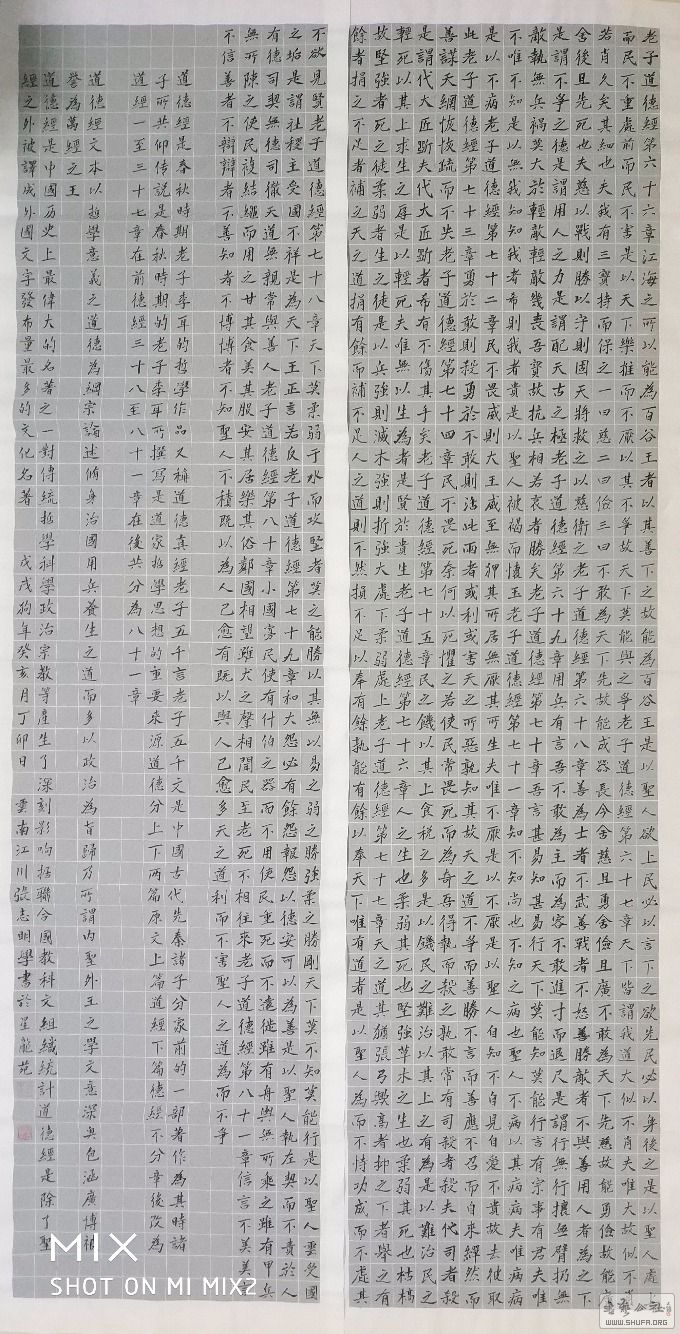 老子道德經第六十六章江海之所以能為百谷王者以其善下之故能為百谷王是以聖人欲上民必以言下之欲先民必以身後之是以聖人處上
而民不重處前而民不害是以天下樂推而不厭以其不爭故天下莫能與之爭老子道德經第六十七章天下皆謂我道大似不肖夫唯大故似不肖
若肖久矣其細也夫我有三寶持而保之一曰慈二曰儉三曰不敢為天下先慈故能勇儉故能廣不敢為天下先故能成器長今舍慈且勇舍儉且廣
舍後且先死矣夫慈以戰則勝以守則固天將救之以慈衛之老子道德經第六十八章善為士者不武善戰者不怒善勝敵者不與善用人者為之下
是謂不爭之德是謂用人之力是謂配天古之極老子道德經第六十九章用兵有言吾不敢為主而為客不敢進寸而退尺是謂行無行攘無臂扔無
敵執無兵禍莫大於輕敵輕敵幾喪吾寶故抗兵相若哀者勝矣老子道德經第七十章吾言甚易知甚易行天下莫能知莫能行言有宗事有君夫唯
不知是以無我知知我者希則我者貴是以聖人被褐而懷玉老子道德經第七十一章知不知尚也不知知病也聖人不病以其病病夫唯病病
是以不病老子道德經第七十二章民不畏威則大威至無狎其所居無厭其所生夫唯不厭是以不厭是以聖人自知不自見自愛不自貴故去彼取
此老子道德經第七十三章勇於敢則殺勇於不敢則活此兩者或利或害天之所惡孰知其故天之道不爭而善勝不言而善應不召而自來繟然而
善謀天網恢恢疏而不失老子道德經第七十四章民不畏死奈何以死懼之若使民常畏死而為奇者吾得執而殺之孰敢常有司殺者殺夫代司殺者殺
是謂代大匠斲夫代大匠斲者希有不傷其手矣老子道德經第七十五章民之饑以其上食稅之多是以饑民之難治以其上之有為是以難治民之
輕死以其上求生之厚是以輕死夫唯無以生為者是賢於貴生老子道德經第七十六章人之生也柔弱其死也堅強草木之生也柔弱其死也枯槁
故堅強者死之徒柔弱者生之徒是以兵強則滅木強則折強大處下柔弱處上老子道德經第七十七章天之道其猶張弓與高者抑之下者舉之有
餘者損之不足者補之天之道損有餘而補不足人之道則不然損不足以奉有餘孰能有餘以奉天下唯有道者是以聖人為而不恃功成而不處其
不欲見賢老子道德經第七十八章天下莫柔弱于水而攻堅者莫之能勝以其無以易之弱之勝強柔之勝剛天下莫不知莫能行是以聖人雲受國
之垢是謂社稷主受國不祥是為天下王正言若反老子道德經第七十九章和大怨必有餘怨報怨以德安可以為善是以聖人執左契而不責於人
有德司契無德司徹天道無親常與善人老子道德經第八十章小國寡民使有什伯之器而不用使民重死而不遠徙雖有舟輿無所乘之雖有甲兵
無所陳之使民復結繩而用之甘其食美其服安其居樂其俗鄰國相望雞犬之聲相聞民至老死不相往來老子道德經第八十一章信言不美美言
不信善者不辯辯者不善知者不博博者不知聖人不積既以為人己愈有既以與人己愈多天之道利而不害聖人之道為而不爭
道德經是春秋時期老子李耳的哲學作品又稱道德真經老子五千言老子五千文是中國古代先秦諸子分家前的一部著作為其時諸
子所共仰传說是春秋的老子李耳所撰写是道家哲學思想的重要來源道德經分上下兩篇原文上篇道經下篇德經不分章後改為
道經一至三十七章在前德經三十八至八十一章在後共分為八十一章
道德經文本以哲學意義之道德為綱宗論述脩身治國用兵養生之道而多以政治為旨歸乃所謂內聖外王之學文意深奧包涵廣博被
譽為萬經之王
道德經是中國历史上最偉大的名著之一對傳統哲學科學政治宗教等產生了深刻影响據联合國教科文組織統計道德經是除了聖
經之外被譯成外國文字發布量最多的文化名著 戊戌狗年癸亥月丁卯日 雲南江川張志明學書於星龍苑
MIX
SHOT ON MI MIX2
書藝公社
WWW.SHUFA.ORG